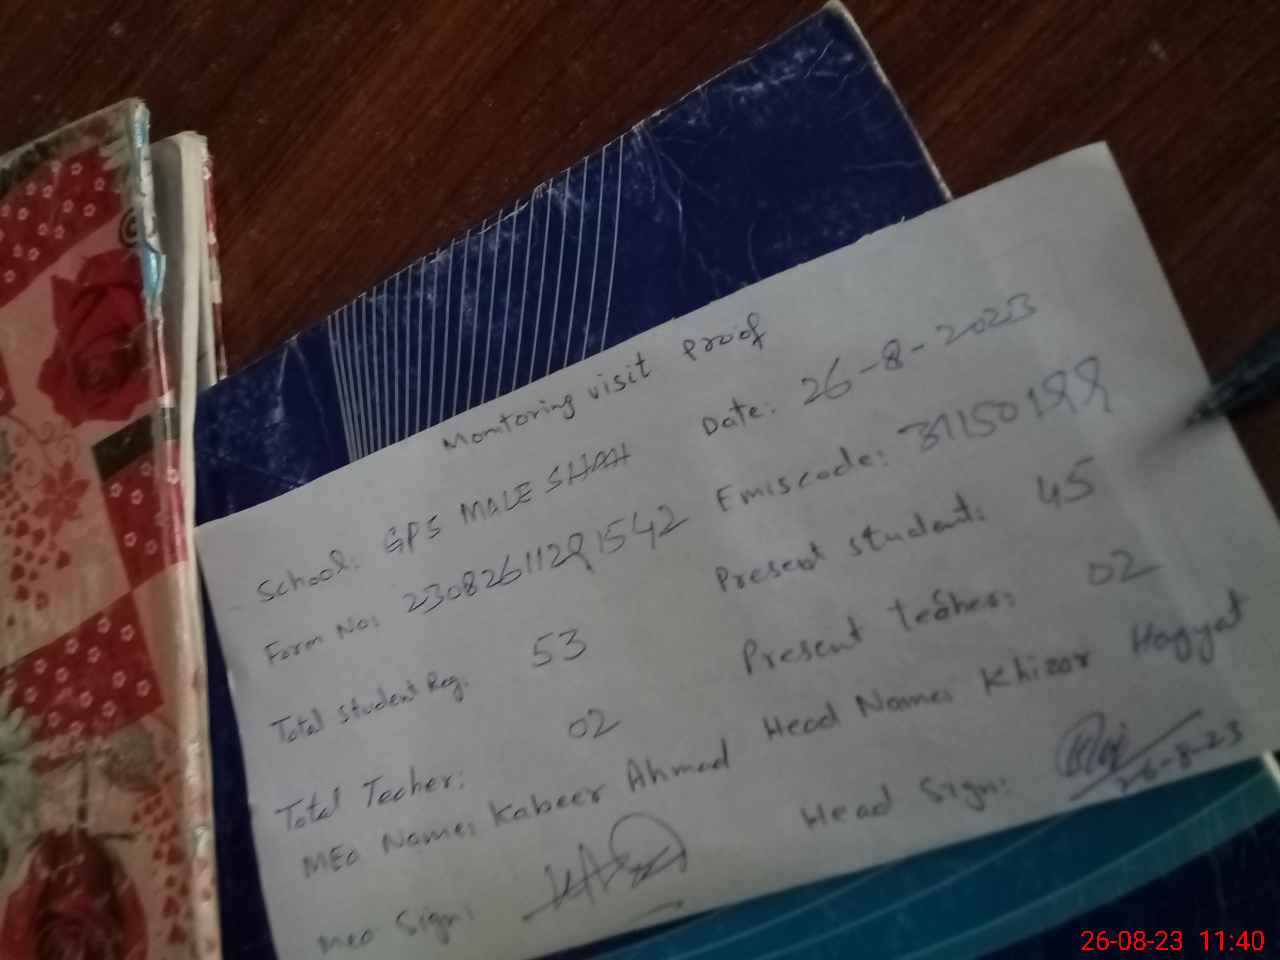 Monitoring visit proof
School: GPS MALE SHAH Date: 26-8-2023
Form No: 23082611291542 Emiscode: 31150199
Total Student Reg: 53 Present student: 45
Total Techer: 02 Present Techer: 02
MEO Name: Kabeer Ahmad Head Name: Khizar Hayyat
Meo Sign: Head Sign: 26-8-23
26-08-23 11:40